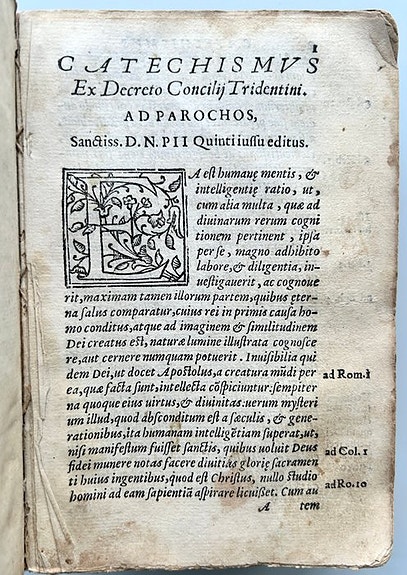 1
CATECHISMVS
Ex Decreto Concilij Tridentini.
AD PAROCHOS,
Sanctiss. D. N. PII Quinti iussu editus.
EA est humanę mentis, &
intelligentię ratio, ut,
cum alia multa, quæ ad
diuinarum rerum cogni
tionem pertinent, ipsa
per se, magno adhibito
labore, & diligentia, in-
uestigauerit, ac cognoue
rit, maximam tamen illorum partem, quibus ęter-
na salus comparatur, cuius rei in primis causa ho-
mo conditus, atque ad imaginem & similitudinem
Dei creatus est, naturæ lumine illustrata cognosce
re, aut cernere numquam potuerit. Inuisibilia qui
dem Dei, ut docet Apostolus, a creatura mũdi per ad Rom. 1
ea, quæ facta sunt, intellecta cõspiciuntur: sempiter
na quoque eius uirtus, & diuinitas: uerum mysteri
um illud, quod absconditum est a sæculis, & gene-
rationibus, ita humanam intelligẽtiam superat, ut,
nisi manifestum fuisset sanctis, quibus uoluit Deus ad Col. 1
fidei munere notas facere diuitias glorię sacramen
ti huius ingentibus, quod est Christus, nullo studio
homini ad eam sapientiã aspirare licuisset. Cum au ad Ro. 10
A tem